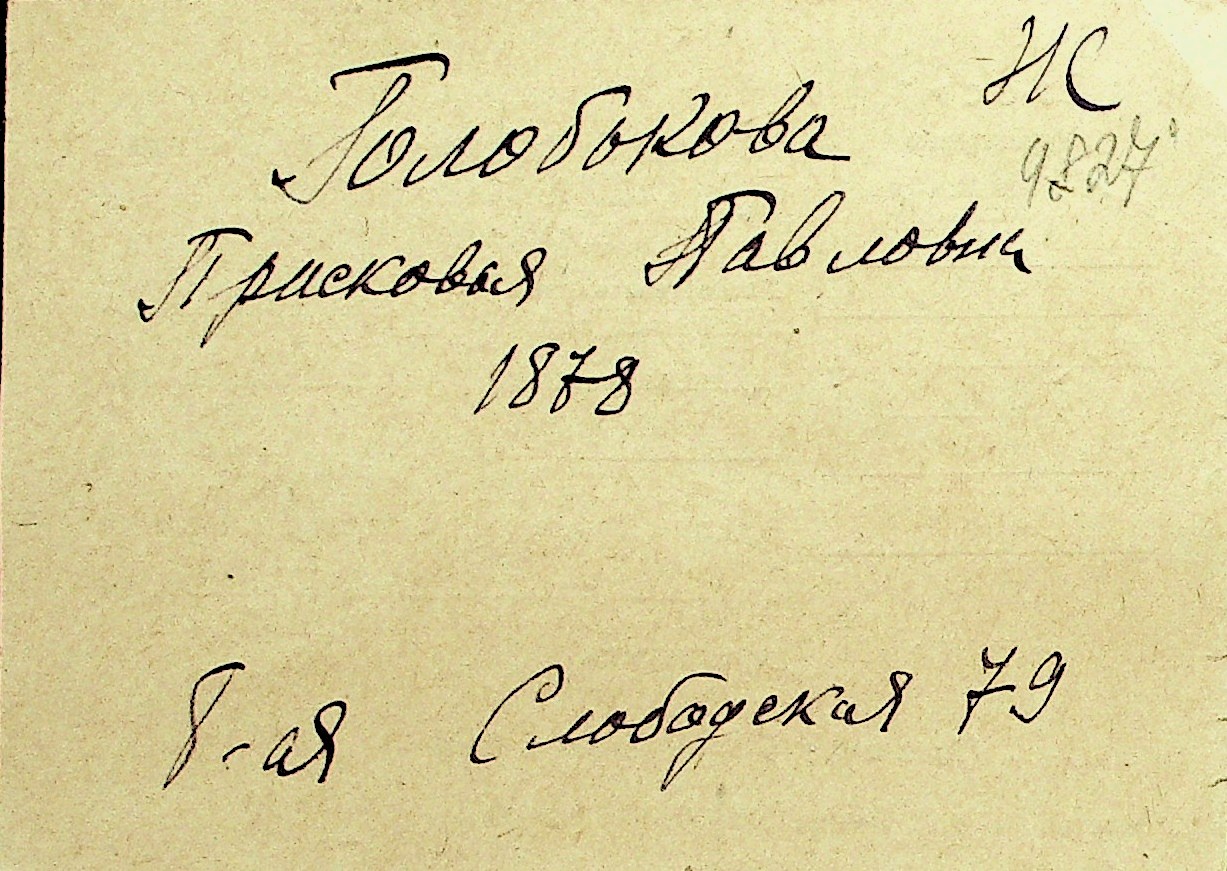 НС
Голобокова
9827
Присковая Павловна
1878
8-ая Слободская 79